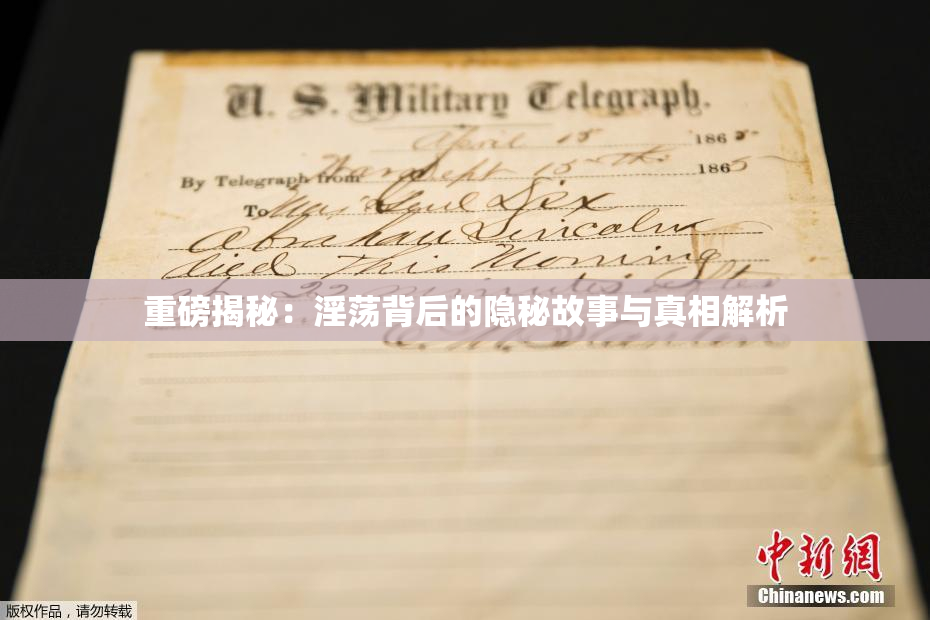 U. S. Military Telegraph.
April 15 1865
By Telegraph from War Dept 15th 1865
To Maj Genl Dix
Abraham Lincoln
died This Morning
at 22 minutes after
重磅揭秘：淫荡背后的隐秘故事与真相解析
中新网
Chinanews.com
版权作品，请勿转载